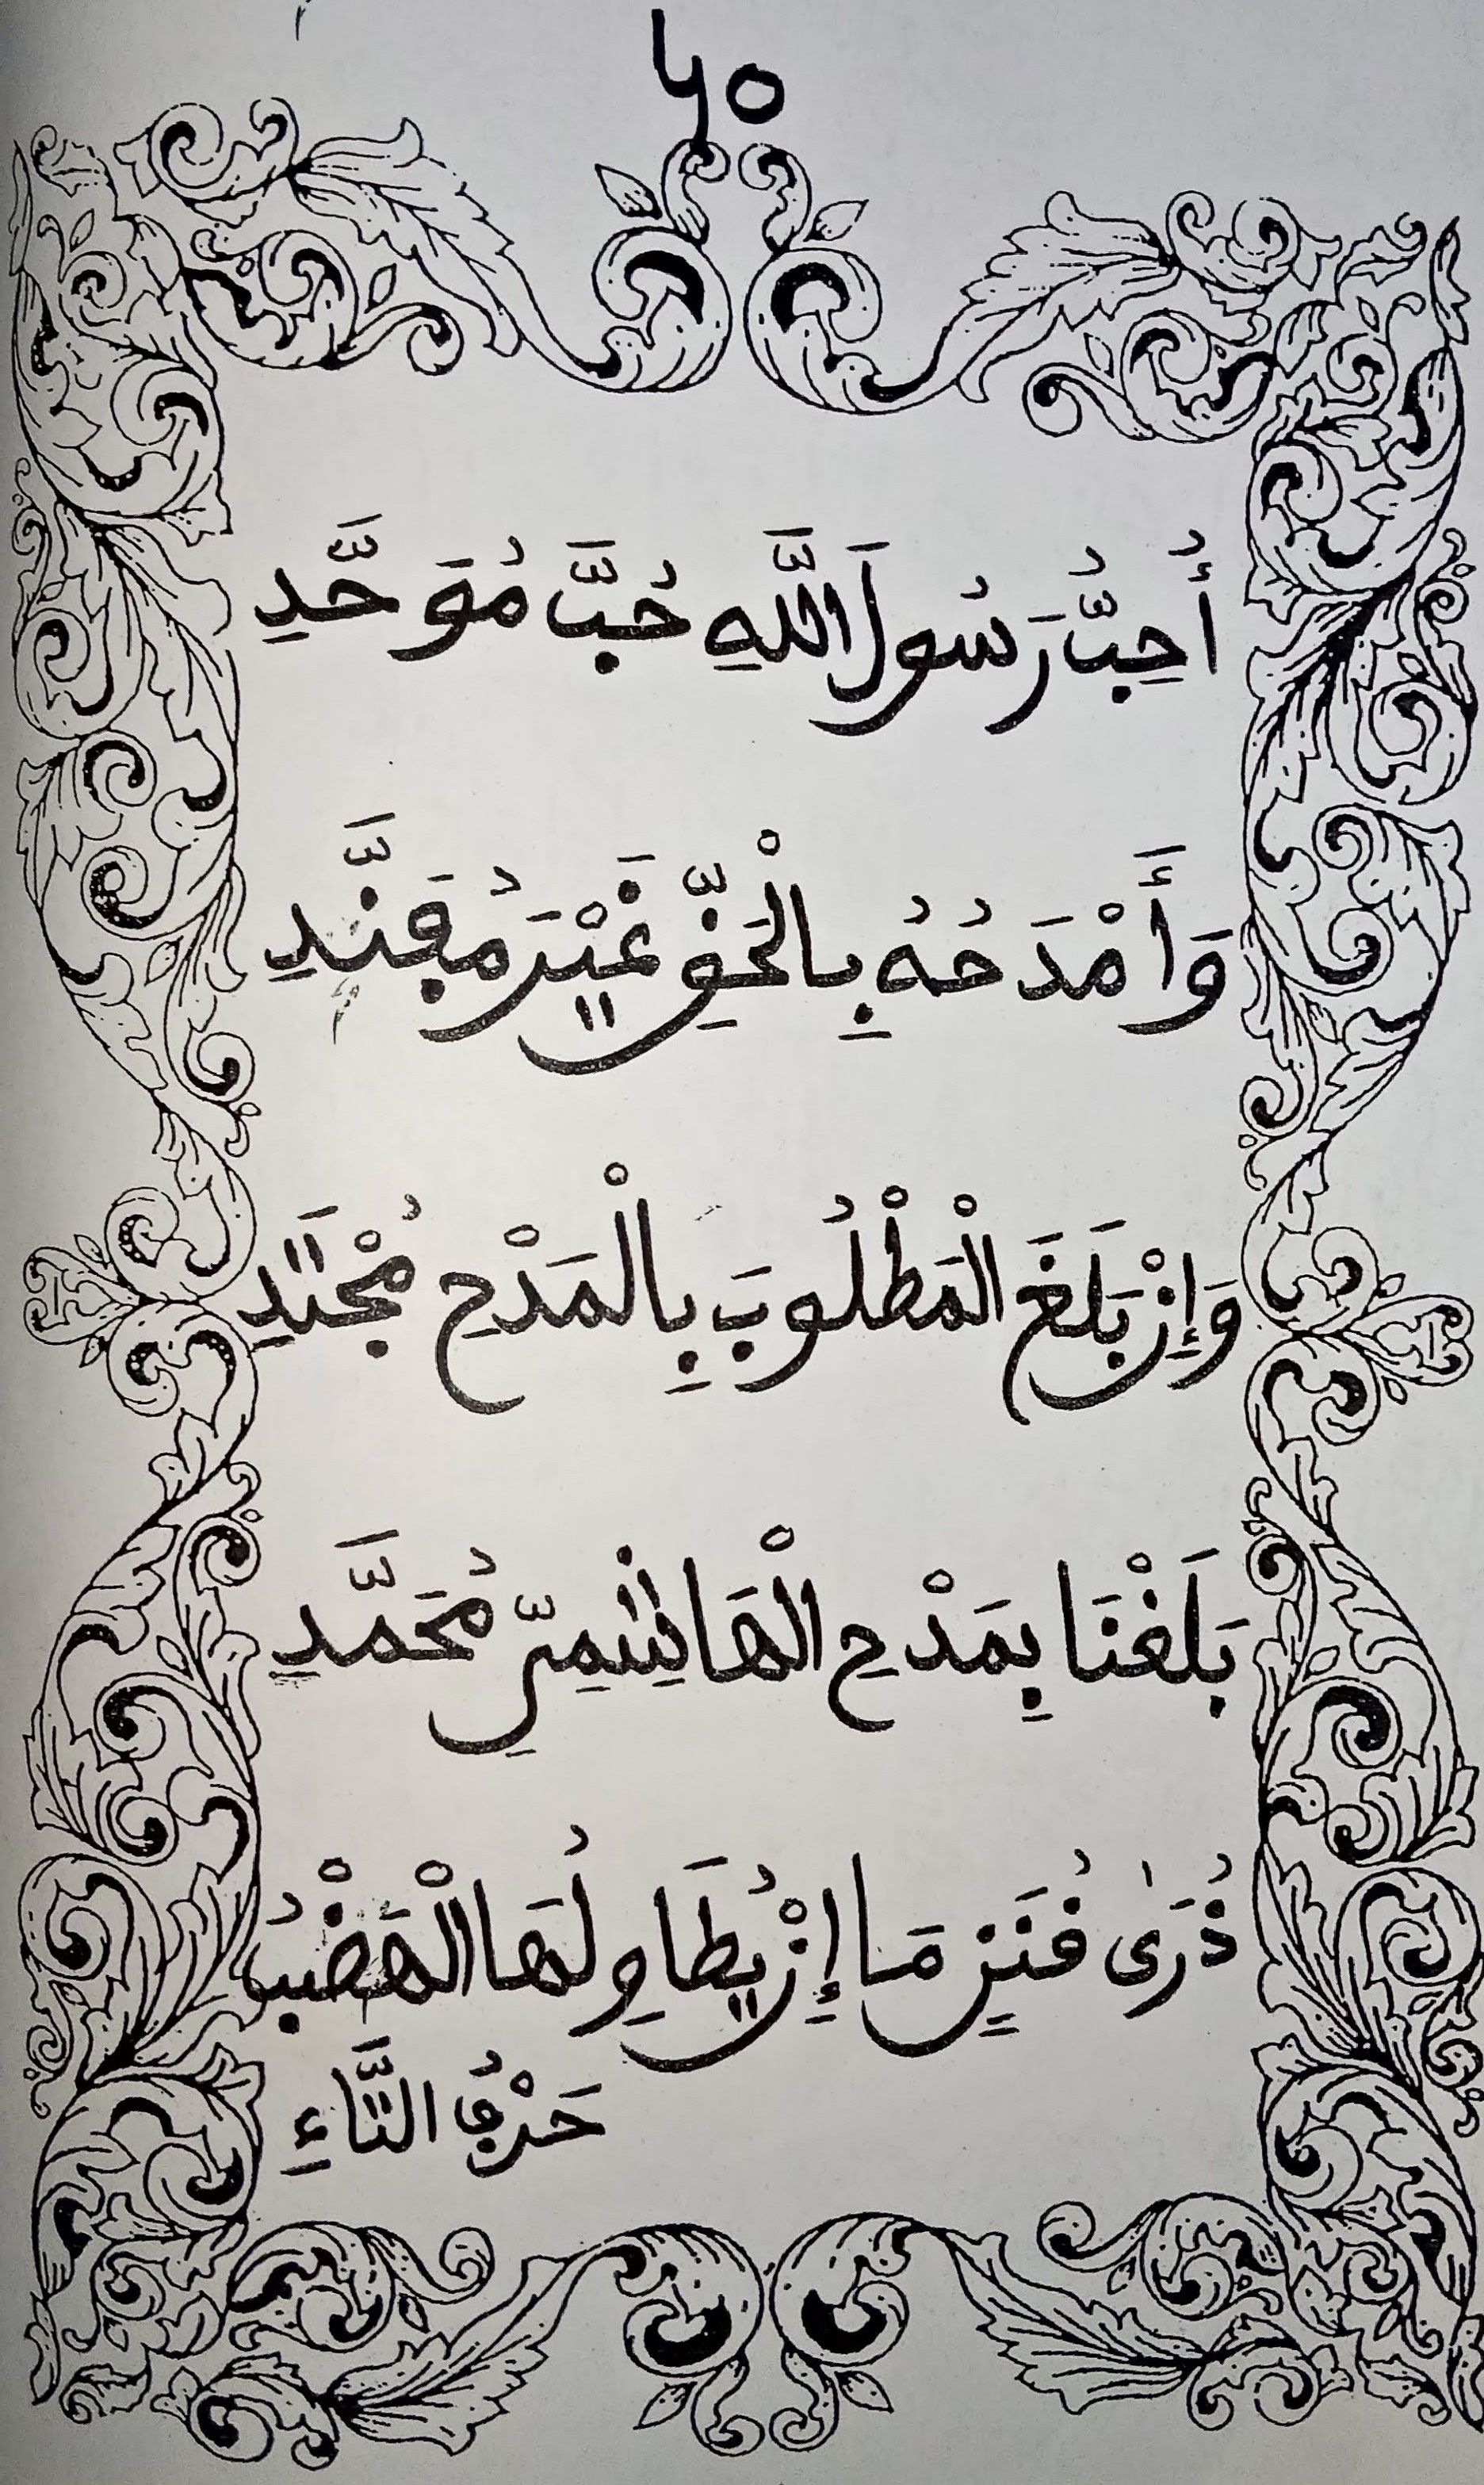 أُحِبُّ رَسُولَ اللَّهِ حُبَّ مُوَحَّدِ
وَأَمْدَحُهُ بِالْحَقِّ غَيْرَ مُفَنَّدِ
وَإِنْ بَلَغَ الْمَطْلُوبَ بِالْمَدْحِ مُجْتَدِ
بَلَغْنَا بِمَدْحِ الْهَاشِمِيِّ مُحَمَّدِ
ذُرَىٰ قُنَنٍ مَا إِنْ يُطَاوِلُهَا الْهَضْبُ
حَرْفُ التَّاءِ